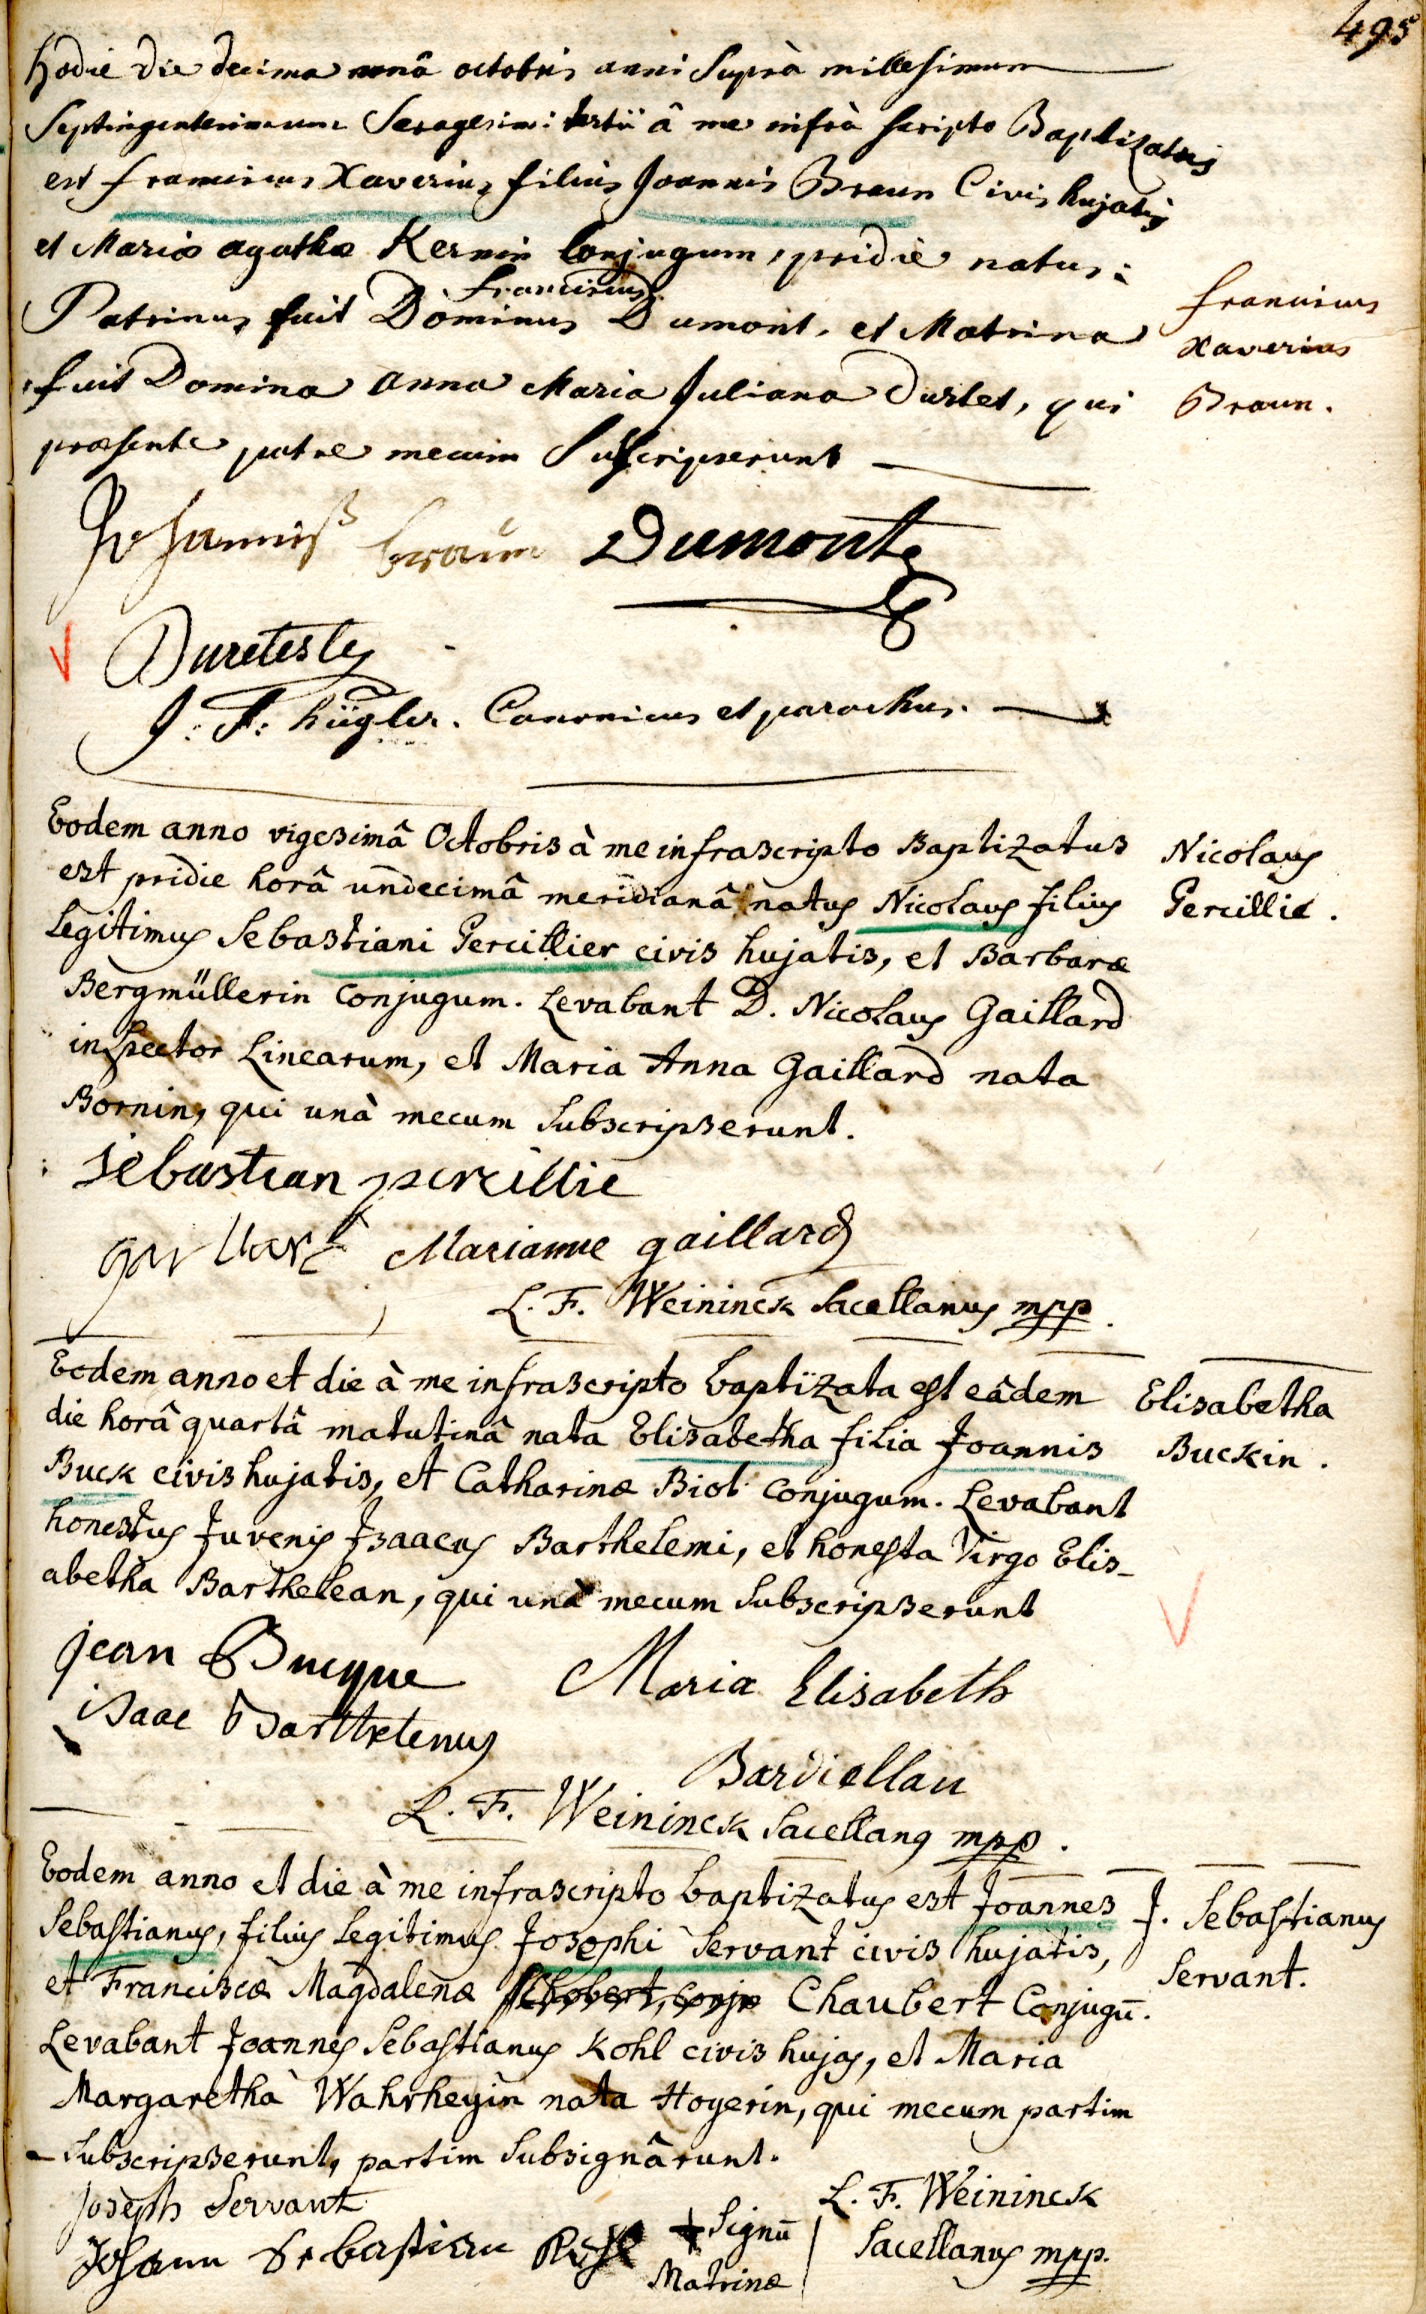 495
Hodie die decima nonâ octobris anni Suprà millesimum
Septingentesimum Sexagesimi tertii â me infrà scripto Baptizatus
est franciscus Xaverius filius Joannis Braun Civis hujatis
et Mariæ agathæ Kernin Conjugum, pridiè natus:
franciscus
Patrinus fuit Dominus Dumont, et Matrina
fuit Domina anna Maria Juliana Durtet, qui
præsente patre mecum Subscripserunt
franciscus
Xaverius
Braun.
Johanniß braun Dumont
J: F: hügler. Canonicus et parochus.
Eodem anno vigesimâ Octobris à me infrascripto Baptizatus
est pridie horâ undecimâ meridianâ natus Nicolaus filius
Legitimus Sebastiani Percillier civis hujatis, et Barbaræ
Bergmüllerin conjugum. Levabant D. Nicolaus Gaillard
inspector Linearum, et Maria Anna Gaillard nata
Bornin, qui unà mecum Subscripserunt.
Nicolaus
Percillie.
sebastian percillie
Marianne gaillard
L. F. Weininck Sacellanus mpp.
Eodem anno et die à me infrascripto baptizata est eâdem
die horâ quartâ matutinâ nata Elisabetha filia Joannis
Buck civis hujatis, et Catharinæ Biot conjugum. Levabant
honestus Juvenis Isaacus Barthelemi, et honesta Virgo Elis-
abetha Barthelean, qui unà mecum Subscripserunt
Elisabetha
Buckin.
jean Bucque Maria Elisabeth
isaac
Bardiellau
L. F. Weininck Sacellanus mpp.
Eodem anno et die à me infrascripto baptizatus est Joannes
Sebastianus, filius Legitimus Josephi Servant civis hujatis,
et Franciscæ Magdalenæ Chaubert Conjugū.
Levabant Joannes Sebastianus Kohl civis hujas, et Maria
Margaretha Wahrheyin nata Hoyerin, qui mecum partim
Subscripserunt, partim Subsignârunt.
J. Sebastianus
Servant.
Joseph Servant
Johann Sebastian
+ Signū
Matrinæ
L. F. Weininck
Sacellanus mpp.